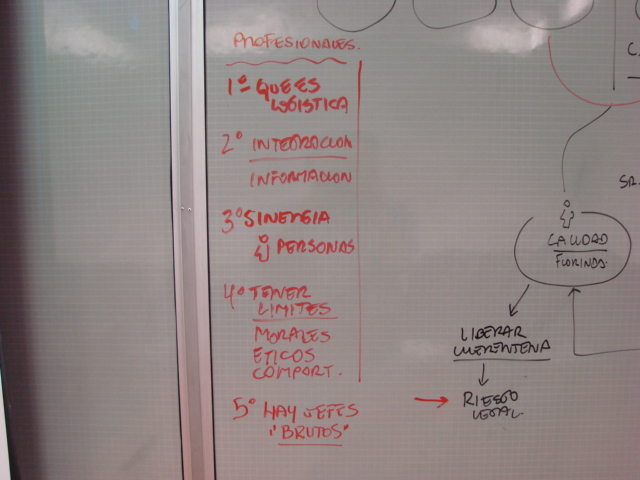 PROFESIONALES.
1º QUE ES
LOGISTICA
2º INTEGRACION
INFORMACION
3º SINERGIA
PERSONAS
4º TENER
LIMITES
MORALES
ETICOS
COMPORT.
5º HAY JEFES
"BRUTOS"
C.
SR.
CALIDAD
FLORINDA.
LIBERAR
CUERENTENA
RIESGO
LEGAL